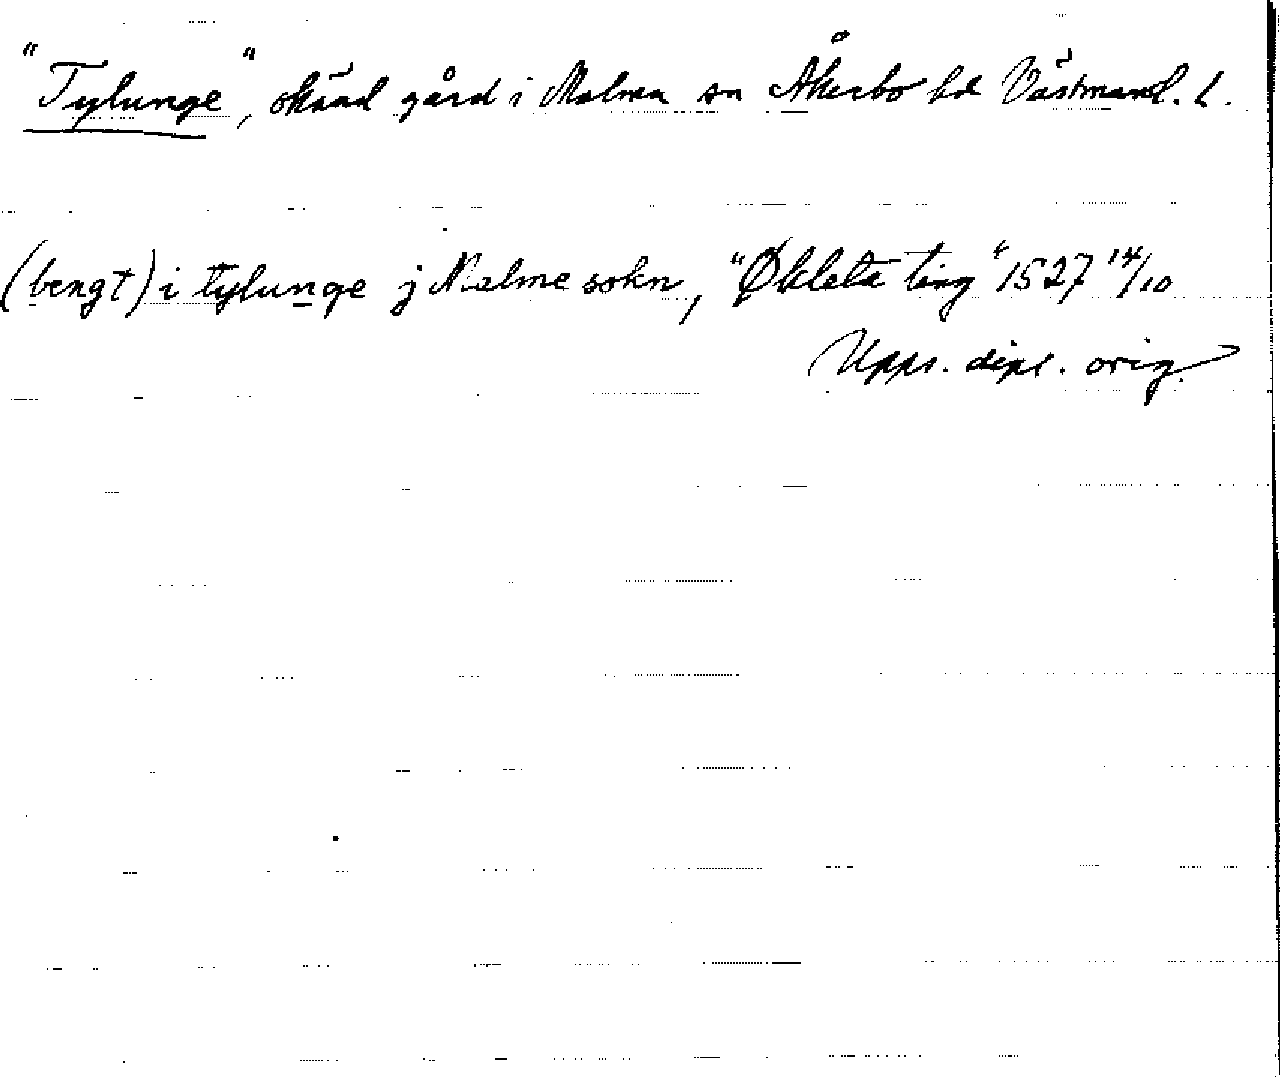 "Tylunge", okänd gård i Malma sn Åkerbo hd Västmanl. l.
(bengt) i tylunge j Malme sokn, "Økleta ting" 1527 14/10
Upps. dipl. orig.